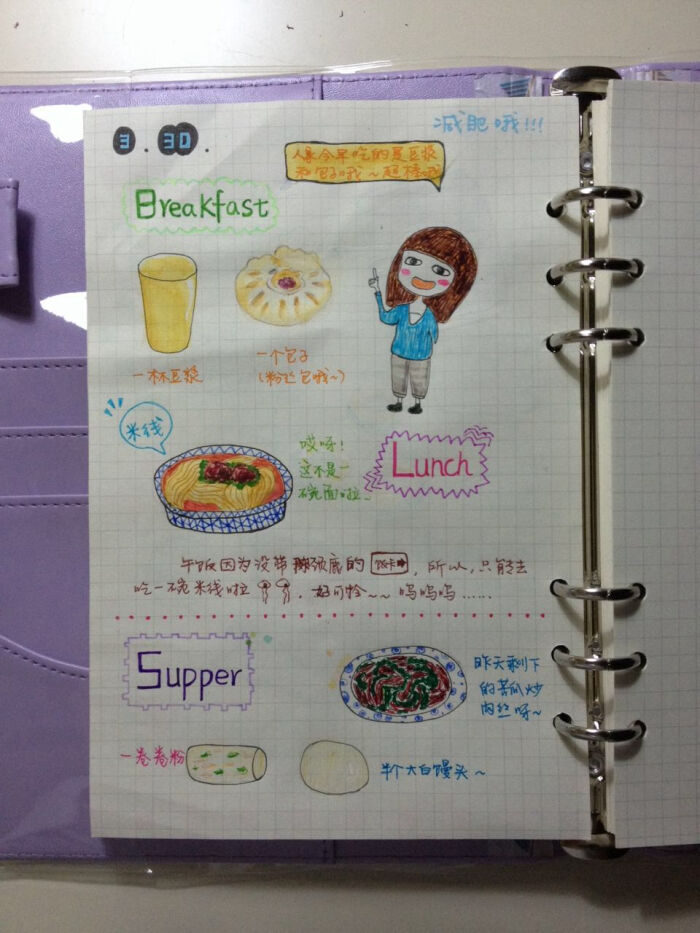 3.30.
减肥哦!!!
人家今早吃的是豆浆
和包子哦~超棒哒
Breakfast
一杯豆浆
一个包子
(粉丝包哦~)
米线
哎呀!
这不是一
碗面啦~
Lunch
午饭因为没带颈底的饭卡,所以,只能去
吃一碗米线啦,好可怜~~呜呜呜……
Supper
昨天剩下
的苦瓜炒
肉丝呀~
一卷卷粉
半个大白馒头~